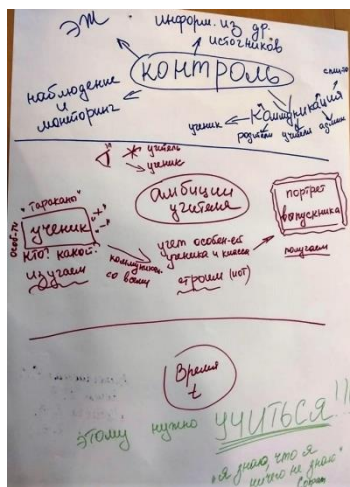 ЭЖ
информ. из др.
источников
контроль
наблюдение
и
мониторинг
Коммуникация
ученик
родители учителя админ
учитель
ученик
"Тараканы"
ученик
"+"
"-"
кто? какой?
изучаем
коммуникац.
со всеми
амбиции
учителя
учет особен-ей
ученика и класса
строим (иот)
портрет
выпускника
получаем
Время
t
этому нужно УЧИТЬСЯ!!!
"Я знаю, что я
ничего не знаю"